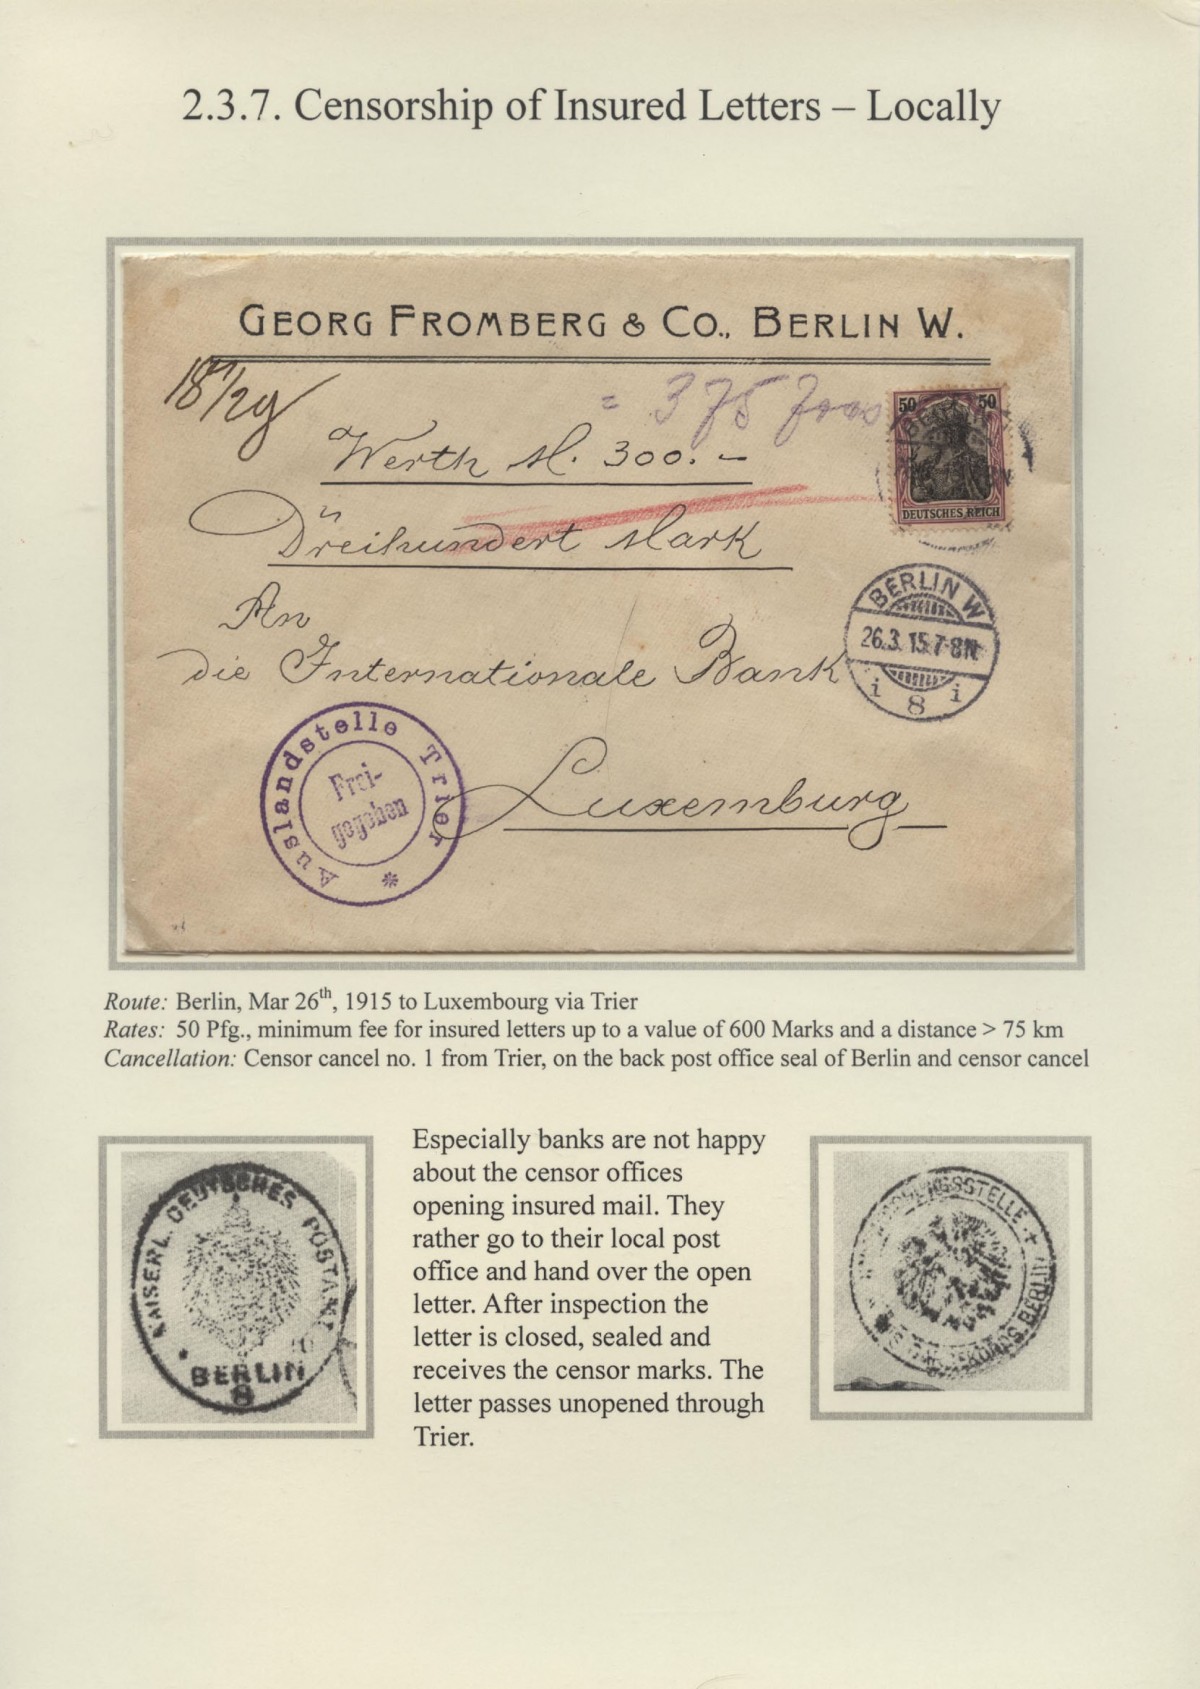 2.3.7. Censorship of Insured Letters – Locally
GEORG FROMBERG & CO., BERLIN W.
= 375 Frcs
Werth M. 300.–
Dreihundert Mark
50 50
DEUTSCHES REICH
An
die Internationale Bank
Luxemburg
BERLIN W
26.3.15.7-8N.
i 8 i
Auslandstelle Trier *
Frei-
gegeben
Route: Berlin, Mar 26th, 1915 to Luxembourg via Trier
Rates: 50 Pfg., minimum fee for insured letters up to a value of 600 Marks and a distance > 75 km
Cancellation: Censor cancel no. 1 from Trier, on the back post office seal of Berlin and censor cancel
KAISERL. DEUTSCHES POSTAMT
* BERLIN
8
Especially banks are not happy
about the censor offices
opening insured mail. They
rather go to their local post
office and hand over the open
letter. After inspection the
letter is closed, sealed and
receives the censor marks. The
letter passes unopened through
Trier.
BERLIN